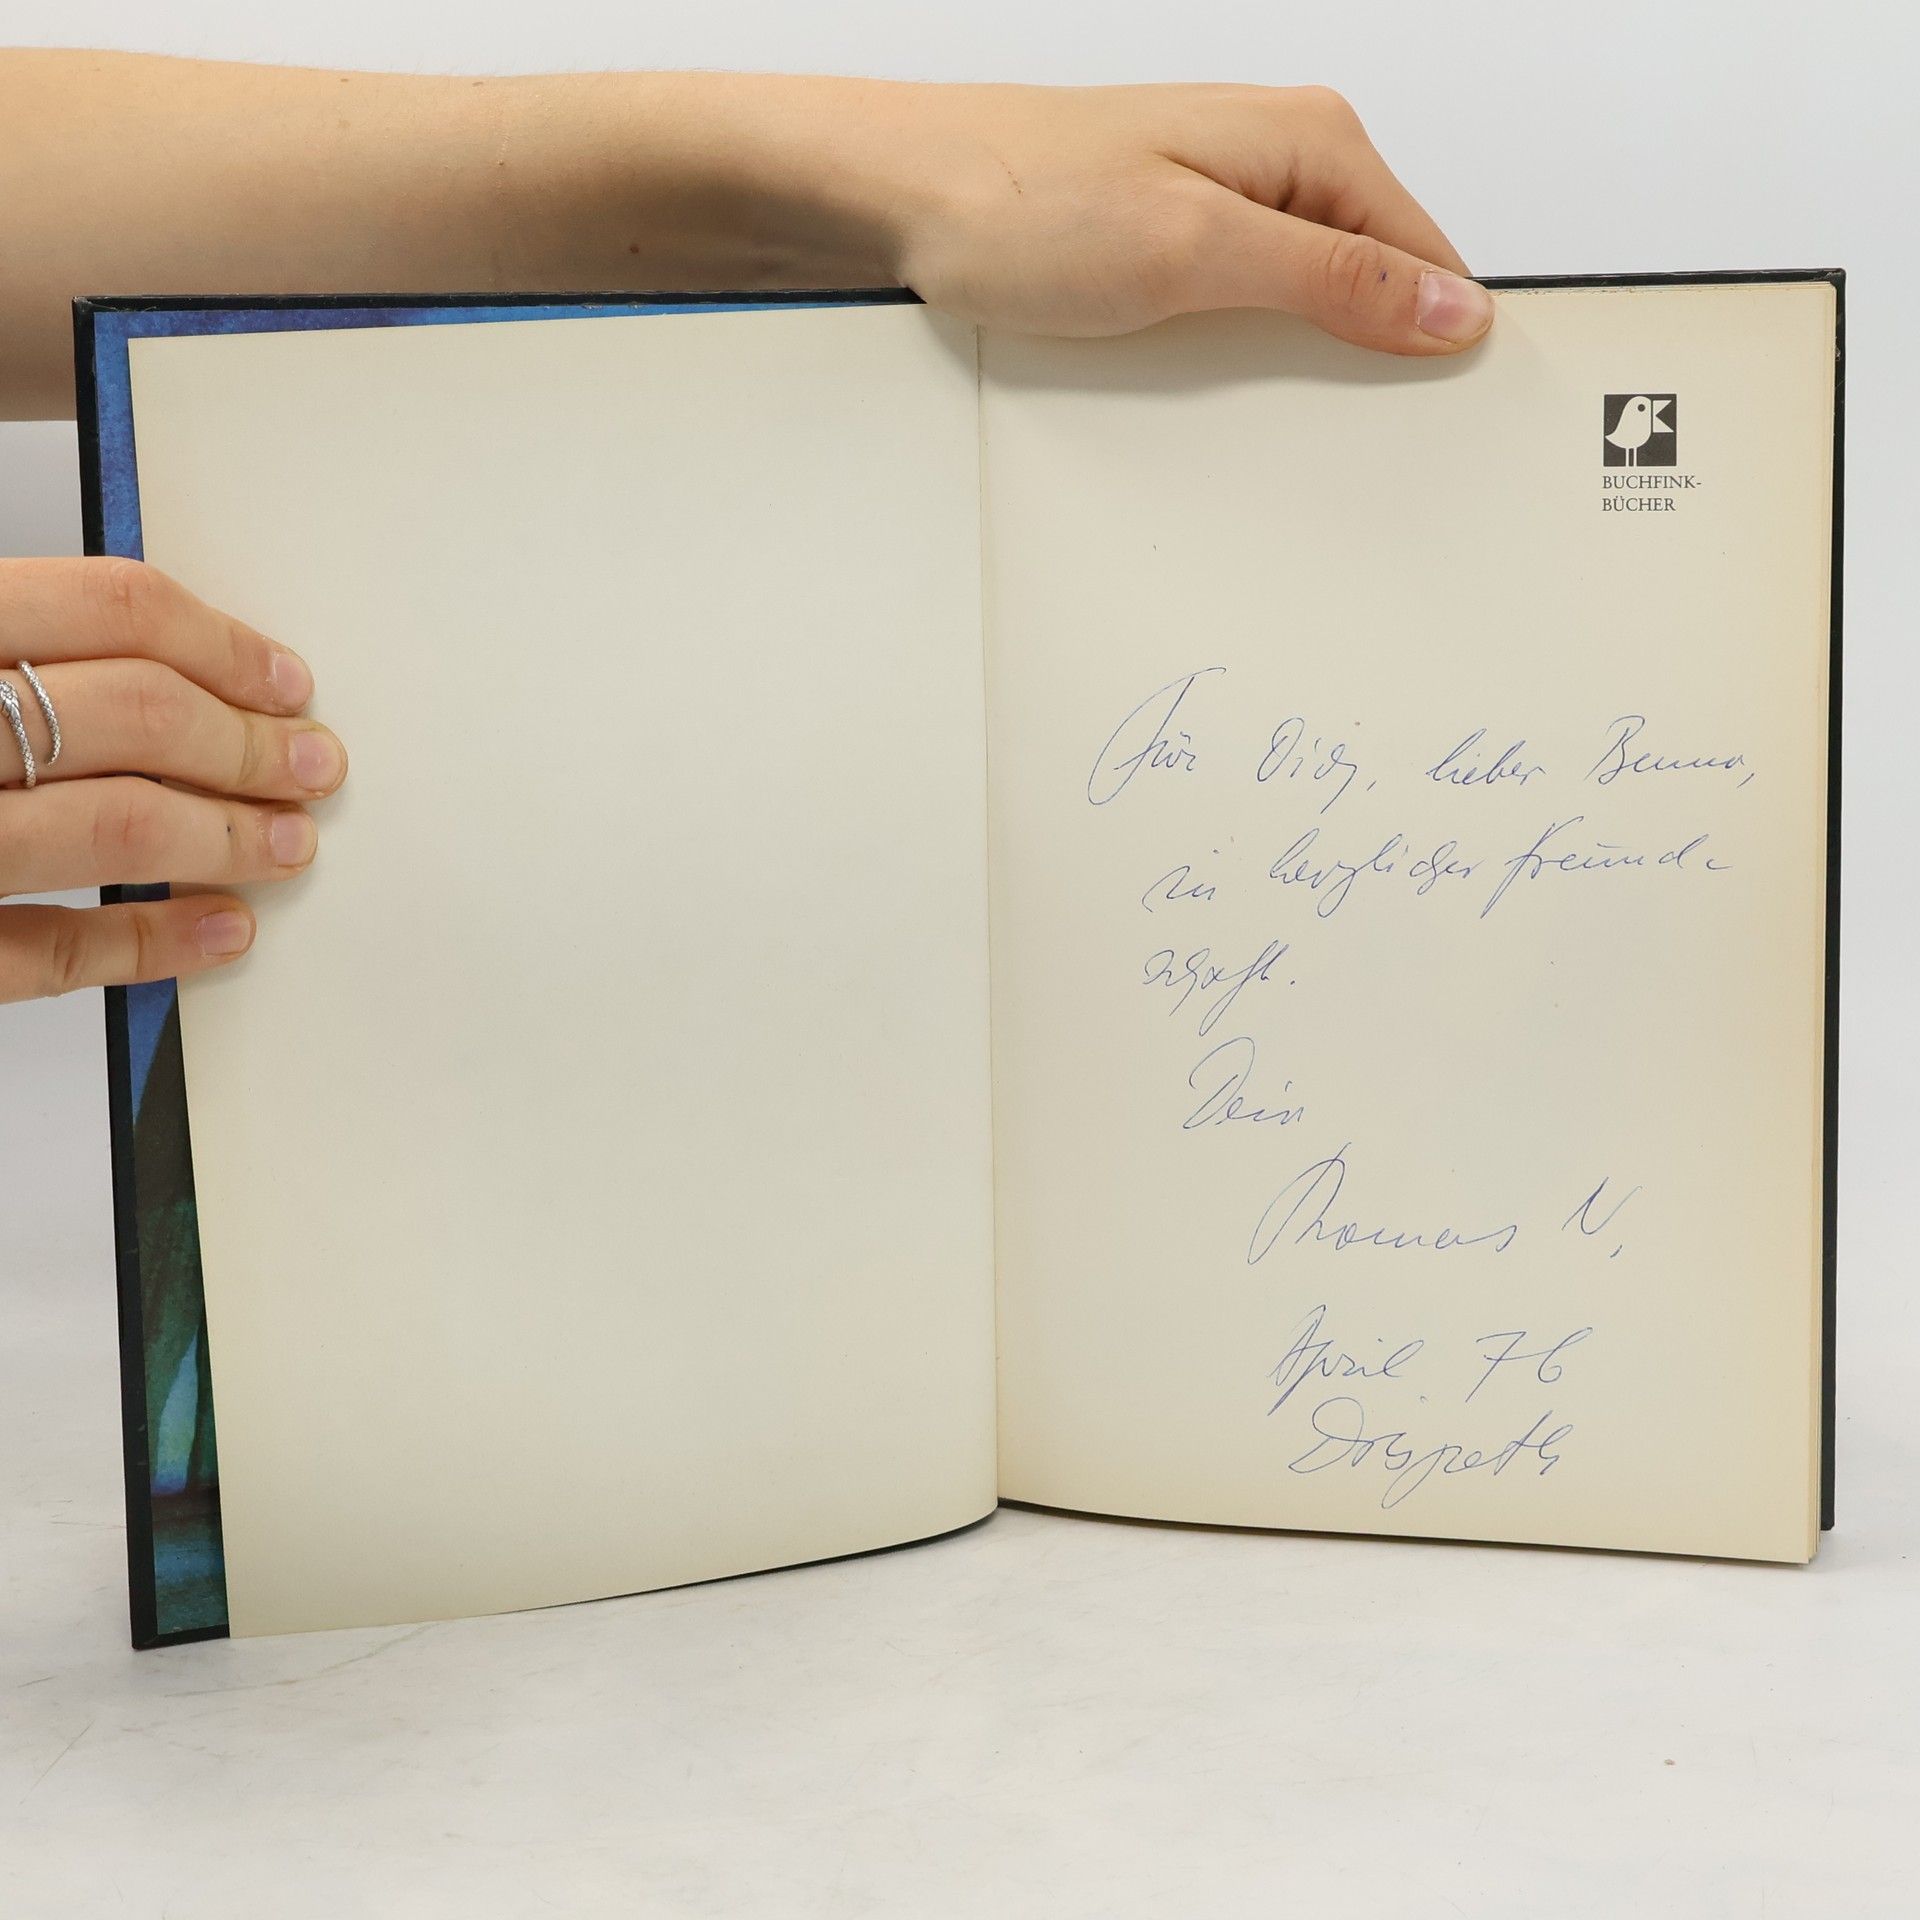 BUCHFINK-
BÜCHER
Für Didy, lieber Benno,
in herzlicher Freund-
schaft.
Dein
Thomas N.
April 76